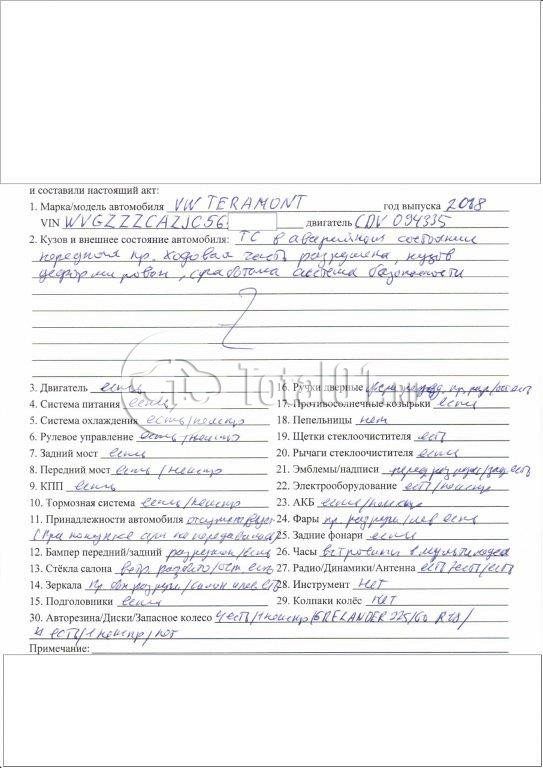 и составили настоящий акт:
1. Марка/модель автомобиля VW TERAMONT год выпуска 2018
VIN WVGZZZCAZJC56 двигатель CDV 094335
2. Кузов и внешнее состояние автомобиля: ТС в аварийном состоянии
передняя пр. ходовая часть разрушена, кузов
деформирован, сработала система безопасности
Total01
3. Двигатель есть
4. Система питания есть
5. Система охлаждения есть/неиспр
6. Рулевое управление есть/неиспр
7. Задний мост есть
8. Передний мост есть/неиспр
9. КПП есть
10. Тормозная система есть/неиспр
11. Принадлежности автомобиля отсутствуют
(При покупке при не передавались)
12. Бампер передний/задний разрушен/есть
13. Стёкла салона ветр. разбито/ост. есть
14. Зеркала Пр. разруш/салон и лев есть
15. Подголовники есть
16. Ручки дверные пр.
17. Противосолнечные козырьки есть
18. Пепельницы нет
19. Щетки стеклоочистителя есть
20. Рычаги стеклоочистителя есть
21. Эмблемы/надписи перед разруш/зад есть
22. Электрооборудование есть/неиспр
23. АКБ есть
24. Фары пр. разруш/лев есть
25. Задние фонари есть
26. Часы встроены в мультимедиа
27. Радио/Динамики/Антенна есть/есть/есть
28. Инструмент нет
29. Колпаки колёс нет
30. Авторезина/Диски/Запасное колесо 4 есть/1 неиспр GRELANDER 225/60 R18/
4 есть/1 неиспр/нет
Примечание: